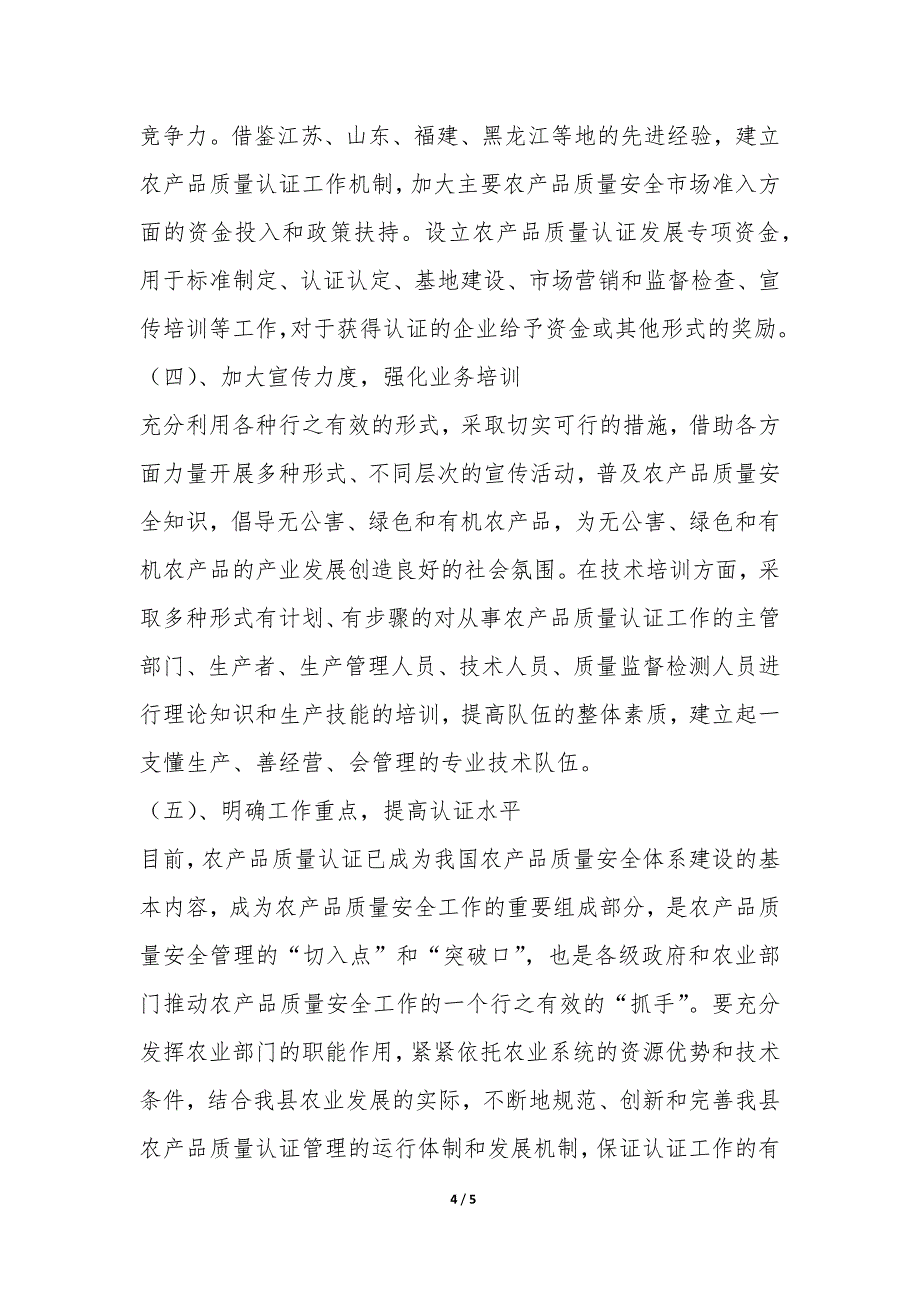 竞争力。借鉴江苏、山东、福建、黑龙江等地的先进经验，建立
农产品质量认证工作机制，加大主要农产品质量安全市场准入方
面的资金投入和政策扶持。设立农产品质量认证发展专项资金，
用于标准制定、认证认定、基地建设、市场营销和监督检查、宣
传培训等工作，对于获得认证的企业给予资金或其他形式的奖励。
（四）、加大宣传力度，强化业务培训
充分利用各种行之有效的形式，采取切实可行的措施，借助各方
面力量开展多种形式、不同层次的宣传活动，普及农产品质量安
全知识，倡导无公害、绿色和有机农产品，为无公害、绿色和有
机农产品的产业发展创造良好的社会氛围。在技术培训方面，采
取多种形式有计划、有步骤的对从事农产品质量认证工作的主管
部门、生产者、生产管理人员、技术人员、质量监督检测人员进
行理论知识和生产技能的培训，提高队伍的整体素质，建立起一
支懂生产、善经营、会管理的专业技术队伍。
（五）、明确工作重点，提高认证水平
目前，农产品质量认证已成为我国农产品质量安全体系建设的基
本内容，成为农产品质量安全工作的重要组成部分，是农产品质
量安全管理的“切入点”和“突破口”，也是各级政府和农业部
门推动农产品质量安全工作的一个行之有效的“抓手”。要充分
发挥农业部门的职能作用，紧紧依托农业系统的资源优势和技术
条件，结合我县农业发展的实际，不断地规范、创新和完善我县
农产品质量认证管理的运行体制和发展机制，保证认证工作的有
4 / 5